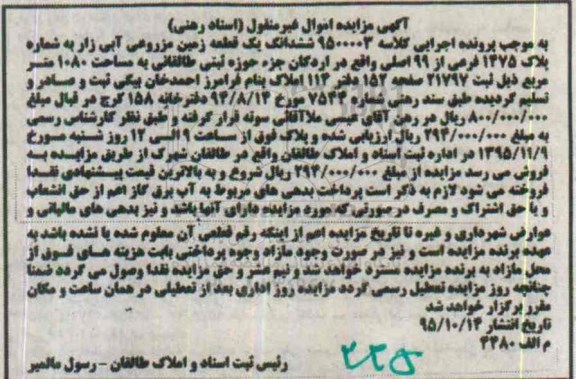 آگهی مزایده اموال غیرمنقول (اسناد رهنی)
به موجب پرونده اجرایی کلاسه ۹۵۰۰۰۰۳ ششدانگ یک قطعه زمین مزروعی آبی زار به شماره
پلاک ۱۴۷۵ فرعی از ۹۹ اصلی واقع در اردکان جزء حوزه ثبتی طالقانی به مساحت ۱۰۸۰ متر
مربع ذیل ثبت ۲۱۷۹۷ صفحه ۱۵۲ دفتر ۱۱۴ املاک بنام فرامرز احمدخان بیگی ثبت و صادر و
تسلیم گردیده طبق سند رهنی شماره ۷۵۴۲ مورخ ۹۲/۸/۱۴ دفترخانه ۱۵۸ کرج در قبال مبلغ
۸۰۰/۰۰۰/۰۰۰ ریال در رهن آقای عیسی ملاآقائی سوته قرار گرفته و طبق نظر کارشناس رسمی
به مبلغ ۲۹۴/۰۰۰/۰۰۰ ریال ارزیابی شده و پلاک فوق از ساعت ۹ الی ۱۲ روز شنبه مورخ
۱۳۹۵/۱۱/۹ در اداره ثبت اسناد و املاک طالقان واقع در طالقان شهرک از طریق مزایده به
فروش می رسد مزایده از مبلغ ۲۹۴/۰۰۰/۰۰۰ ریال شروع و به بالاترین قیمت پیشنهادی نقدا
فروخته می شود لازم به ذکر است پرداخت بدهی های مربوط به آب برق گاز اعم از حق انشعاب
و یا حق اشتراک و مصرف درصورتی که مورد مزایده دارای آنها باشد و نیز بدهی های مالیاتی و
عوارض شهرداری و غیره تا تاریخ مزایده اعم از اینکه رقم قطعی آن معلوم شده یا نشده باشد به
عهده برنده مزایده است و نیز در صورت وجود مازاد وجوه پرداختی بابت هزینه های فوق از
محل مازاد به برنده مزایده مسترد خواهد شد و نیم عشر و حق مزایده نقدا وصول می گردد ضمنا
چنانچه روز مزایده تعطیل رسمی گردد مزایده روز اداری بعد از تعطیلی در همان ساعت و مکان
مقرر برگزار خواهد شد
تاریخ انتشار ۹۵/۱۰/۱۴
م الف ۴۴۸۰
رئیس ثبت اسناد و املاک طالقان - رسول مالمیر